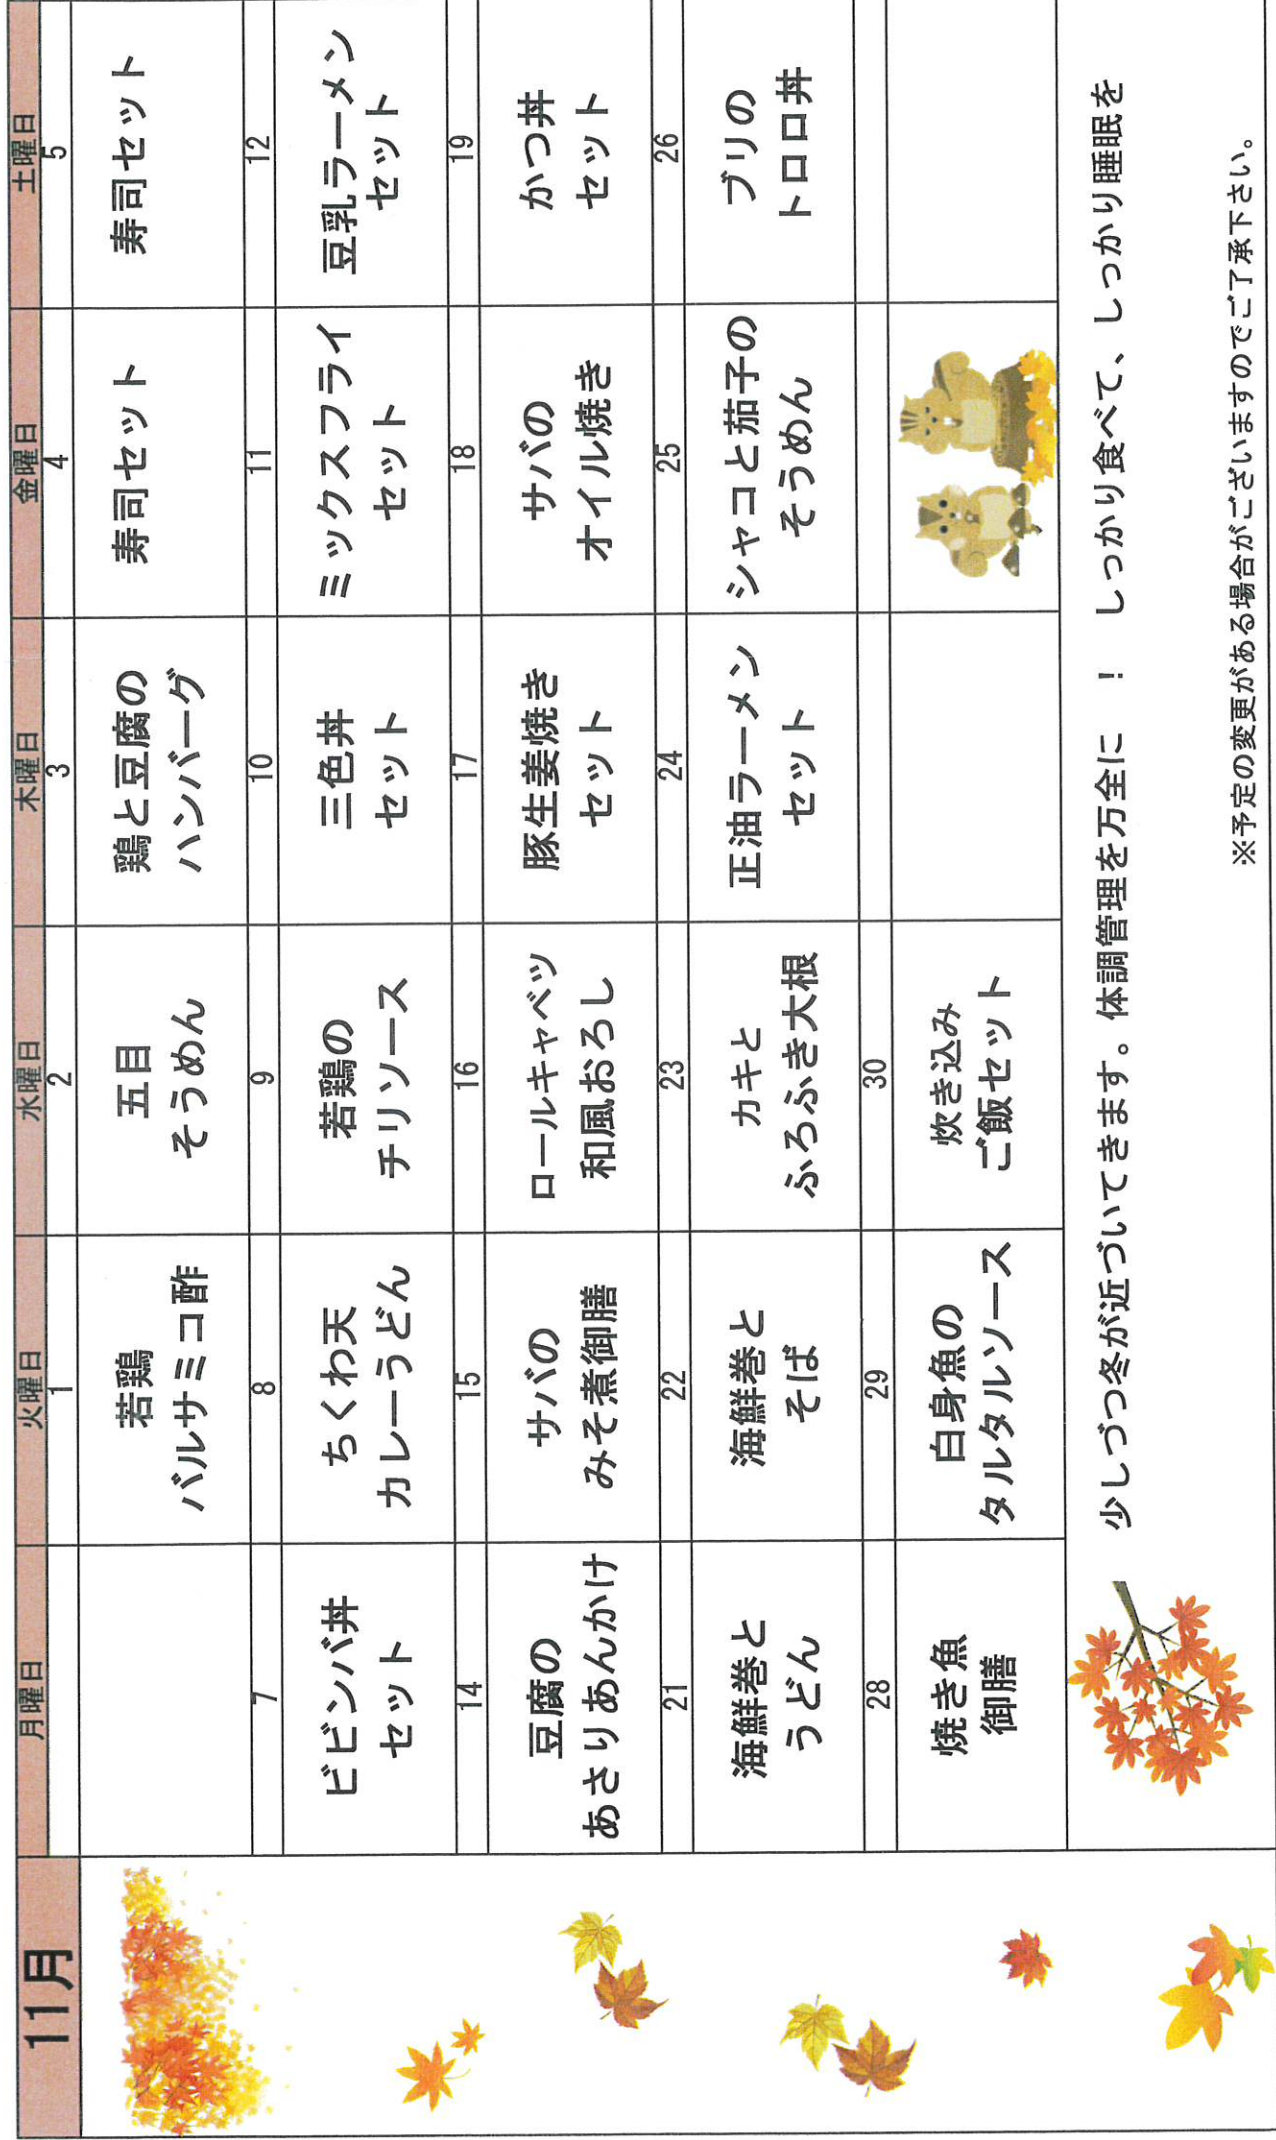 11月
月曜日 火曜日 水曜日 木曜日 金曜日 土曜日
1 2 3 4 5
若鶏
バルサミコ酢
五目
そうめん
鶏と豆腐の
ハンバーグ
寿司セット
寿司セット
7 8 9 10 11 12
ビビンバ丼
セット
ちくわ天
カレーうどん
若鶏の
チリソース
三色丼
セット
ミックスフライ
セット
豆乳ラーメン
セット
14 15 16 17 18 19
豆腐の
あさりあんかけ
サバの
みそ煮御膳
ロールキャベツ
和風おろし
豚生姜焼き
セット
サバの
オイル焼き
かつ丼
セット
21 22 23 24 25 26
海鮮巻と
うどん
海鮮巻と
そば
カキと
ふろふき大根
正油ラーメン
セット
シャコと茄子の
そうめん
ブリの
トロロ丼
28 29 30
焼き魚
御膳
白身魚の
タルタルソース
炊き込み
ご飯セット
少しづつ冬が近づいてきます。体調管理を万全に　！　しっかり食べて、しっかり睡眠を
※予定の変更がある場合がございますのでご了承下さい。